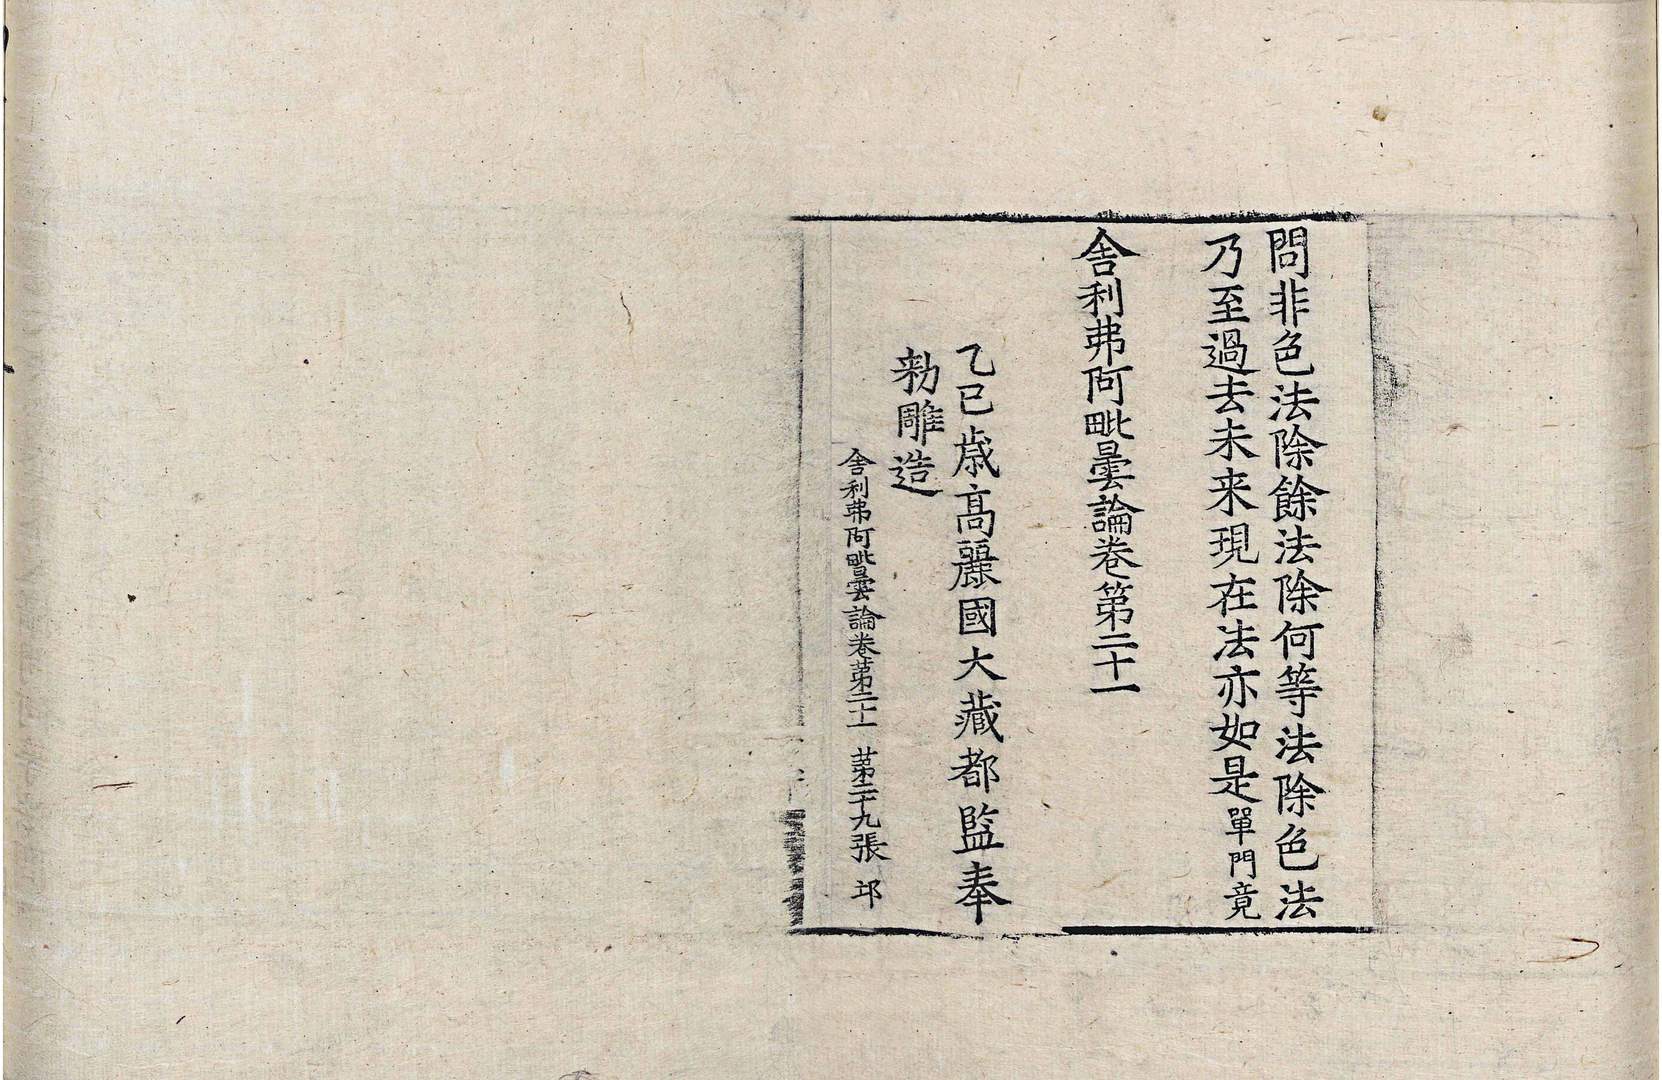 問非色法除餘法除何等法除色法
乃至過去未来現在法亦如是單門竟
舍利弗阿毗曇論卷第二十一
乙巳歳高麗國大藏都監奉
勑雕造
舍利弗阿毗曇論卷苐二十一 苐二十九張 邛